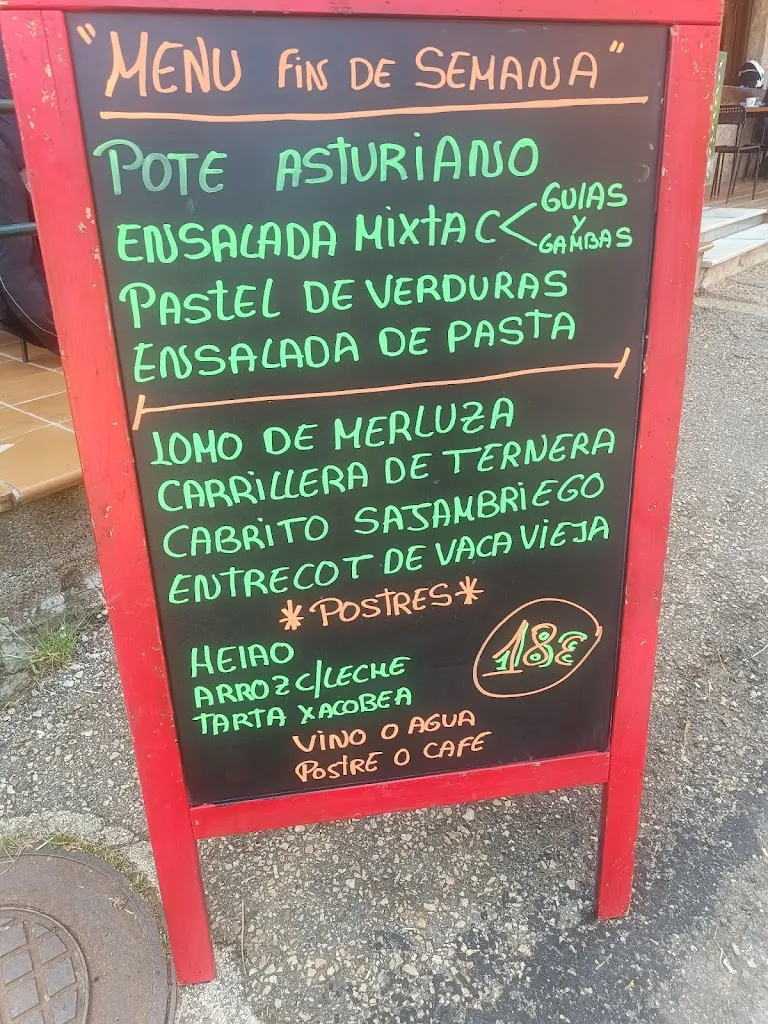 "MENU FIN DE SEMANA"
POTE ASTURIANO
ENSALADA MIXTA C< GULAS Y GAMBAS
PASTEL DE VERDURAS
ENSALADA DE PASTA
LOMO DE MERLUZA
CARRILLERA DE TERNERA
CABRITO SAJAMBRIEGO
ENTRECOT DE VACA VIEJA
*POSTRES*
HELAO
ARROZ C/LECHE
TARTA XACOBEA
18€
VINO O AGUA
POSTRE O CAFE